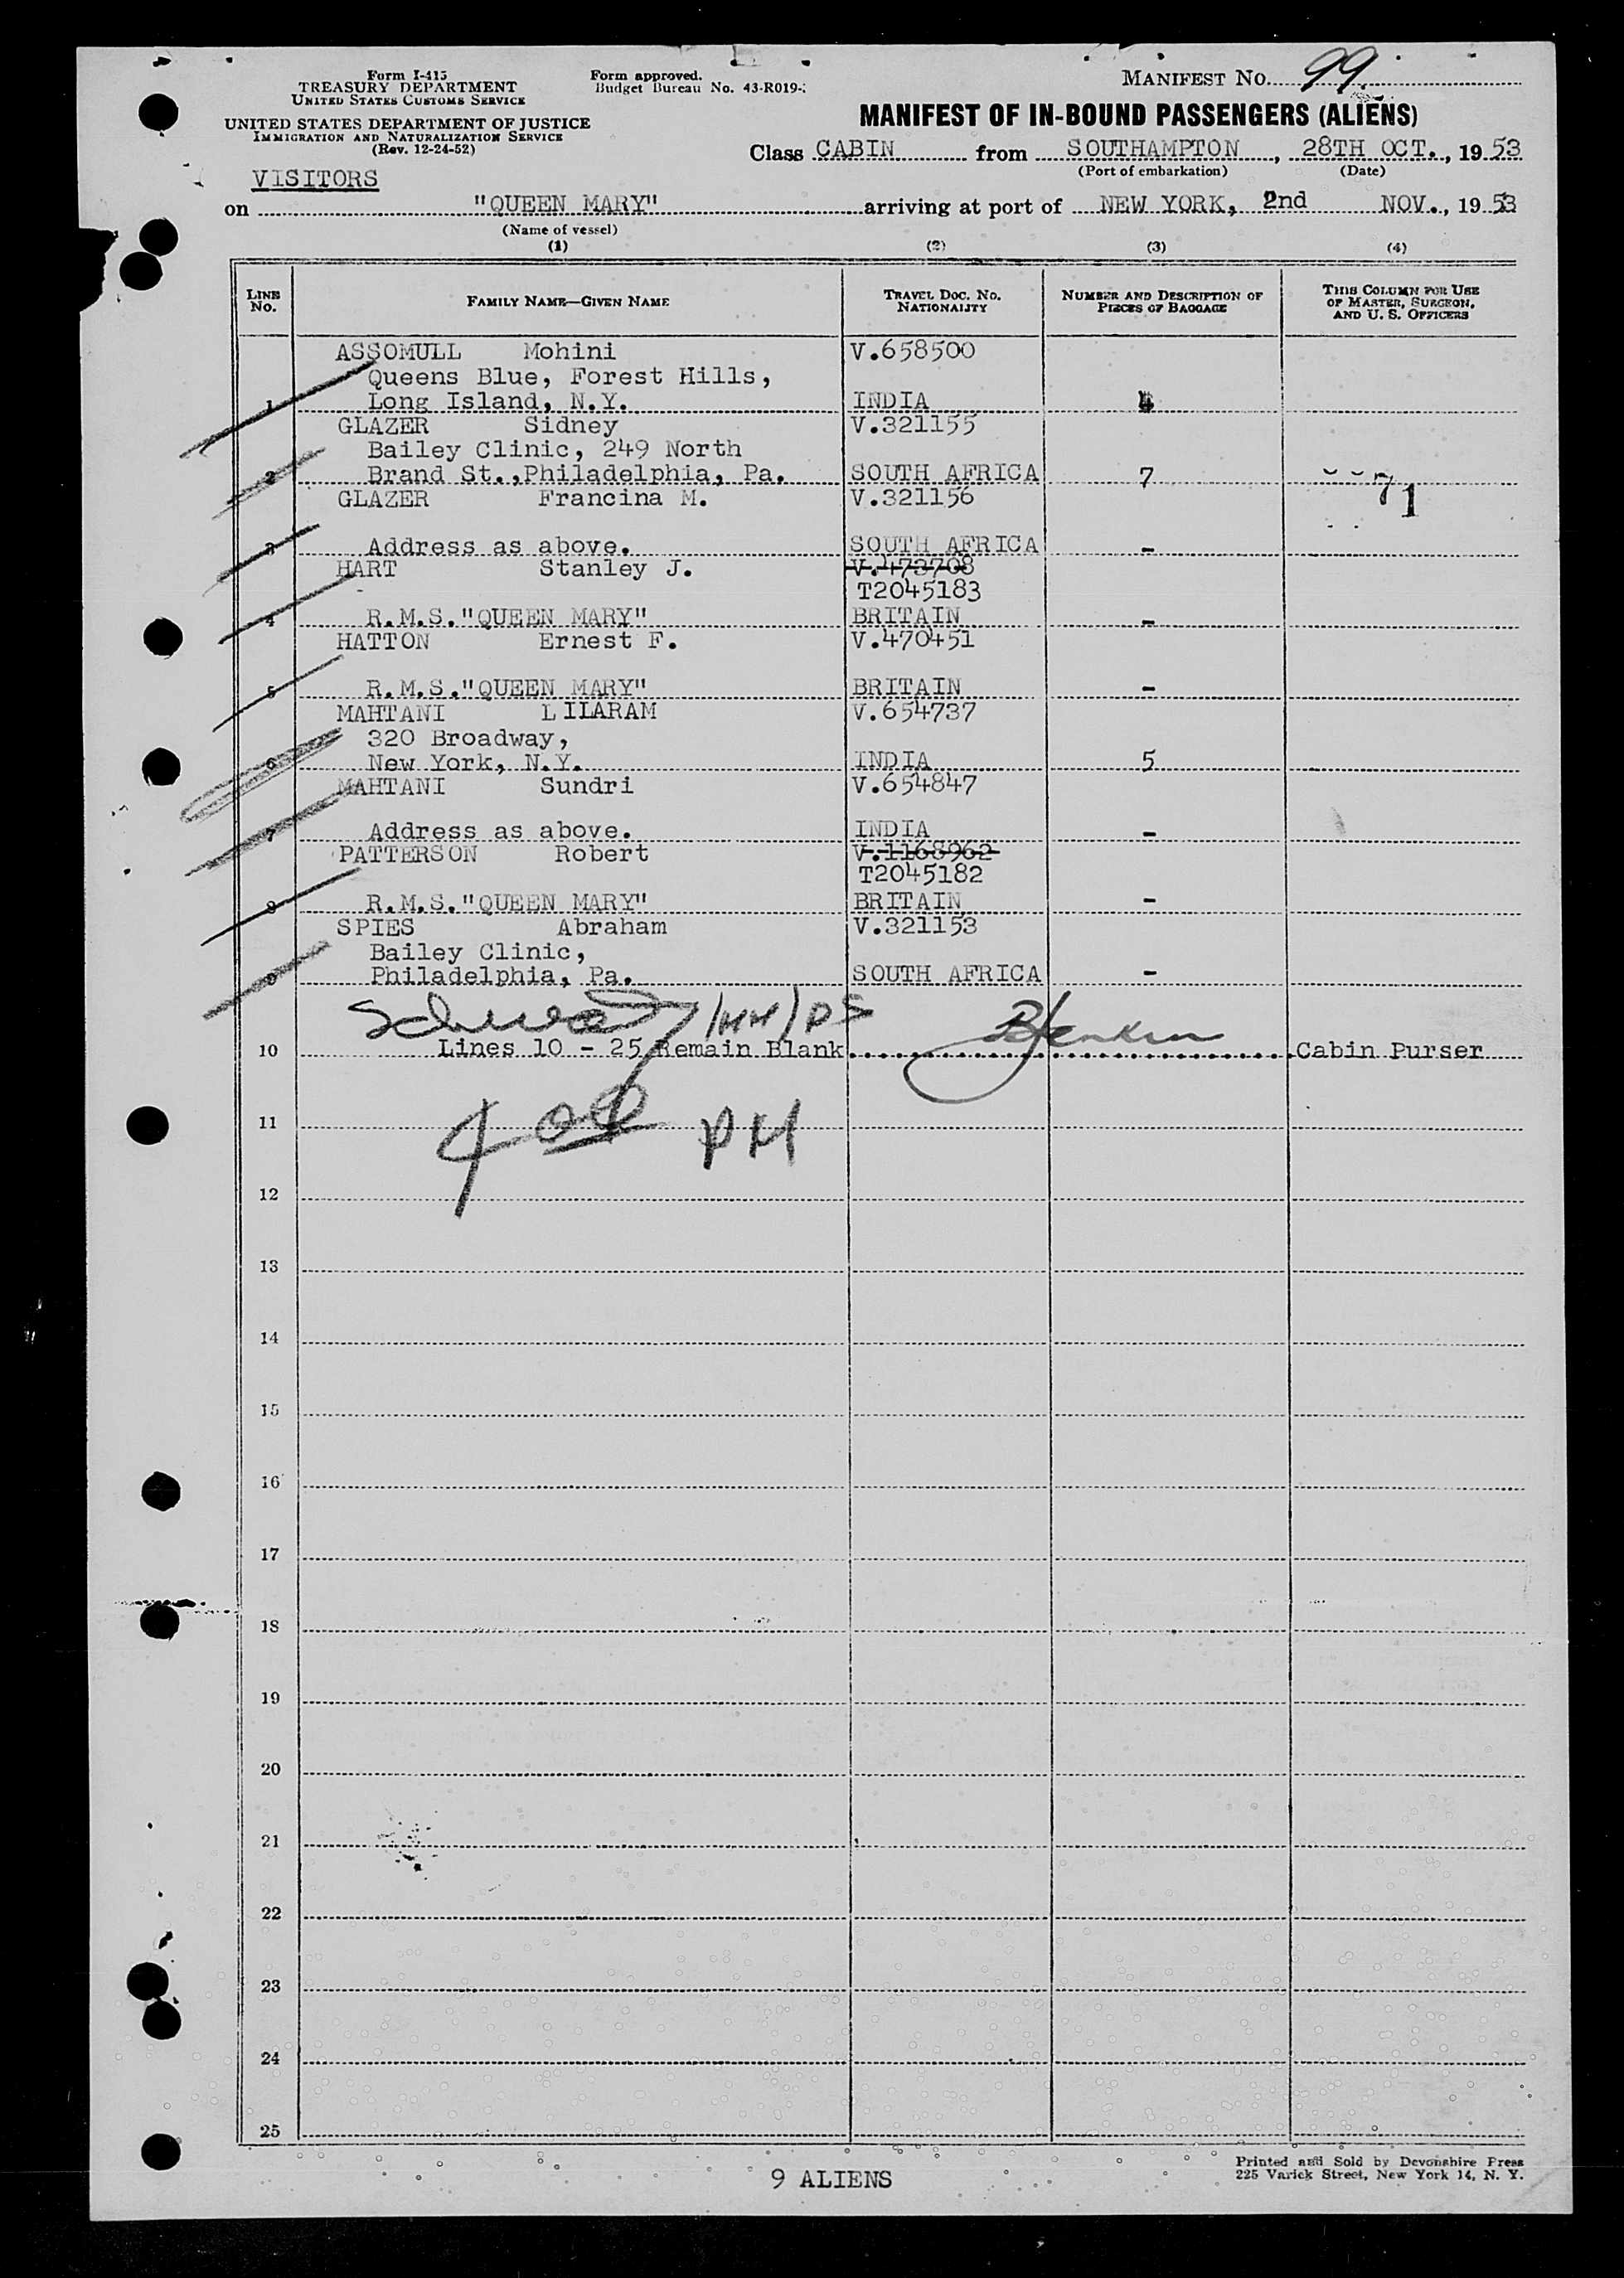 Form I-415
TREASURY DEPARTMENT
UNITED STATES CUSTOMS SERVICE
UNITED STATES DEPARTMENT OF JUSTICE
IMMIGRATION AND NATURALIZATION SERVICE
(Rev. 12-24-52)
Form approved.
Budget Bureau No. 43-R019-
MANIFEST NO. 99
MANIFEST OF IN-BOUND PASSENGERS (ALIENS)
Class CABIN from SOUTHAMPTON, 28TH OCT., 1953
(Port of embarkation) (Date)
VISITORS
on "QUEEN MARY" arriving at port of NEW YORK, 2nd NOV., 1953
(Name of vessel)
(1) (2) (3) (4)
LINE NO. FAMILY NAME—GIVEN NAME TRAVEL DOC. NO. NATIONALITY NUMBER AND DESCRIPTION OF PIECES OF BAGGAGE THIS COLUMN FOR USE OF MASTER, SURGEON, AND U. S. OFFICERS
ASSOMULL Mohini V.658500
Queens Blue, Forest Hills,
1 Long Island, N.Y. INDIA 4
GLAZER Sidney V.321155
Bailey Clinic, 249 North
2 Brand St.,Philadelphia, Pa. SOUTH AFRICA 7 71
GLAZER Francina M. V.321156
3 Address as above. SOUTH AFRICA -
HART Stanley J. V.473708
T2045183
4 R.M.S."QUEEN MARY" BRITAIN -
HATTON Ernest F. V.470451
5 R.M.S."QUEEN MARY" BRITAIN -
MAHTANI LILARAM V.654737
320 Broadway,
6 New York, N.Y. INDIA 5
MAHTANI Sundri V.654847
7 Address as above. INDIA -
PATTERSON Robert V.1168962
T2045182
8 R.M.S."QUEEN MARY" BRITAIN -
SPIES Abraham V.321153
Bailey Clinic,
9 Philadelphia, Pa. SOUTH AFRICA -
10 Lines 10 - 25 Remain Blank Cabin Purser
11
PM
12
13
14
15
16
17
18
19
20
21
22
23
24
25
9 ALIENS
Printed and Sold by Devonshire Press
225 Varick Street, New York 14, N. Y.